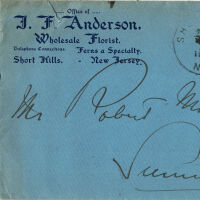 Office of
J. F. Anderson.
Wholesale Florist.
Telephone Connections. Ferns a Specialty.
Short Hills. - New Jersey.
Mr Robert